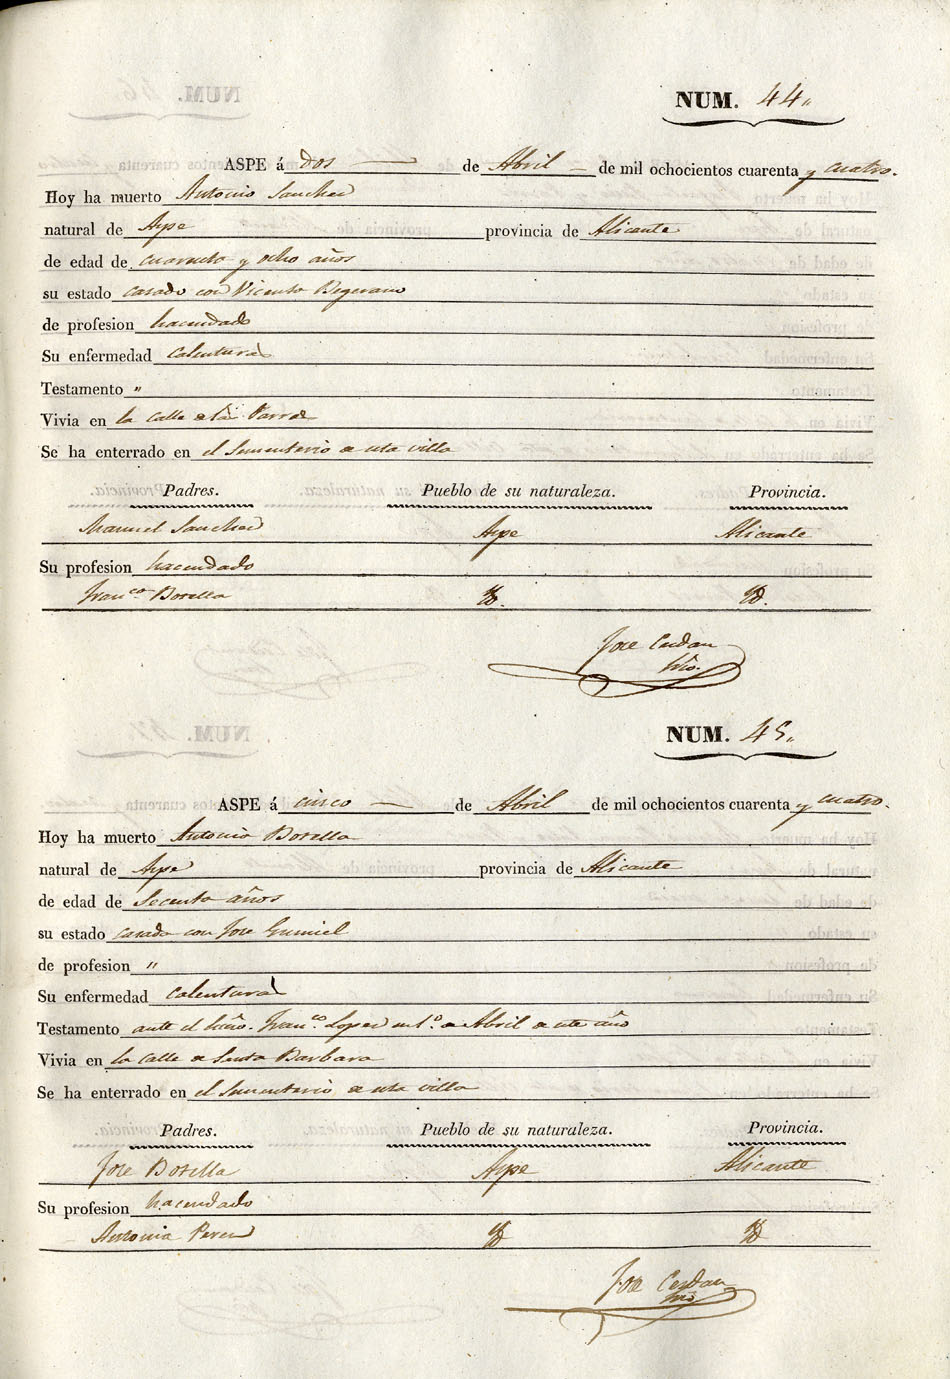 NUM. 44.
ASPE á dos de Abril de mil ochocientos cuarenta y cuatro.
Hoy ha muerto Antonio Sanchez
natural de Aspe provincia de Alicante
de edad de cuarenta y ocho años
su estado casado con Vicenta
de profesion hacendado
Su enfermedad calentura
Testamento "
Vivia en la calle de la Parra
Se ha enterrado en el Sementerio de esta villa
Padres. Pueblo de su naturaleza. Provincia.
Manuel Sanchez Aspe Alicante
Su profesion hacendado
Franco. Botella Yd. Yd.
Jose Cerdan
Srio.
NUM. 45.
ASPE á cinco de Abril de mil ochocientos cuarenta y cuatro.
Hoy ha muerto Antonia Botella
natural de Aspe provincia de Alicante
de edad de Secenta años
su estado casada con Jose Gumiel
de profesion "
Su enfermedad calentura
Testamento ante el Franco. Lopez en 1o. de Abril de este año
Vivia en la calle de Santa Barbara
Se ha enterrado en el Sementerio de esta villa
Padres. Pueblo de su naturaleza. Provincia.
Jose Botella Aspe Alicante
Su profesion hacendado
Antonia Perez Yd Yd
Jose Cerdan
Srio.